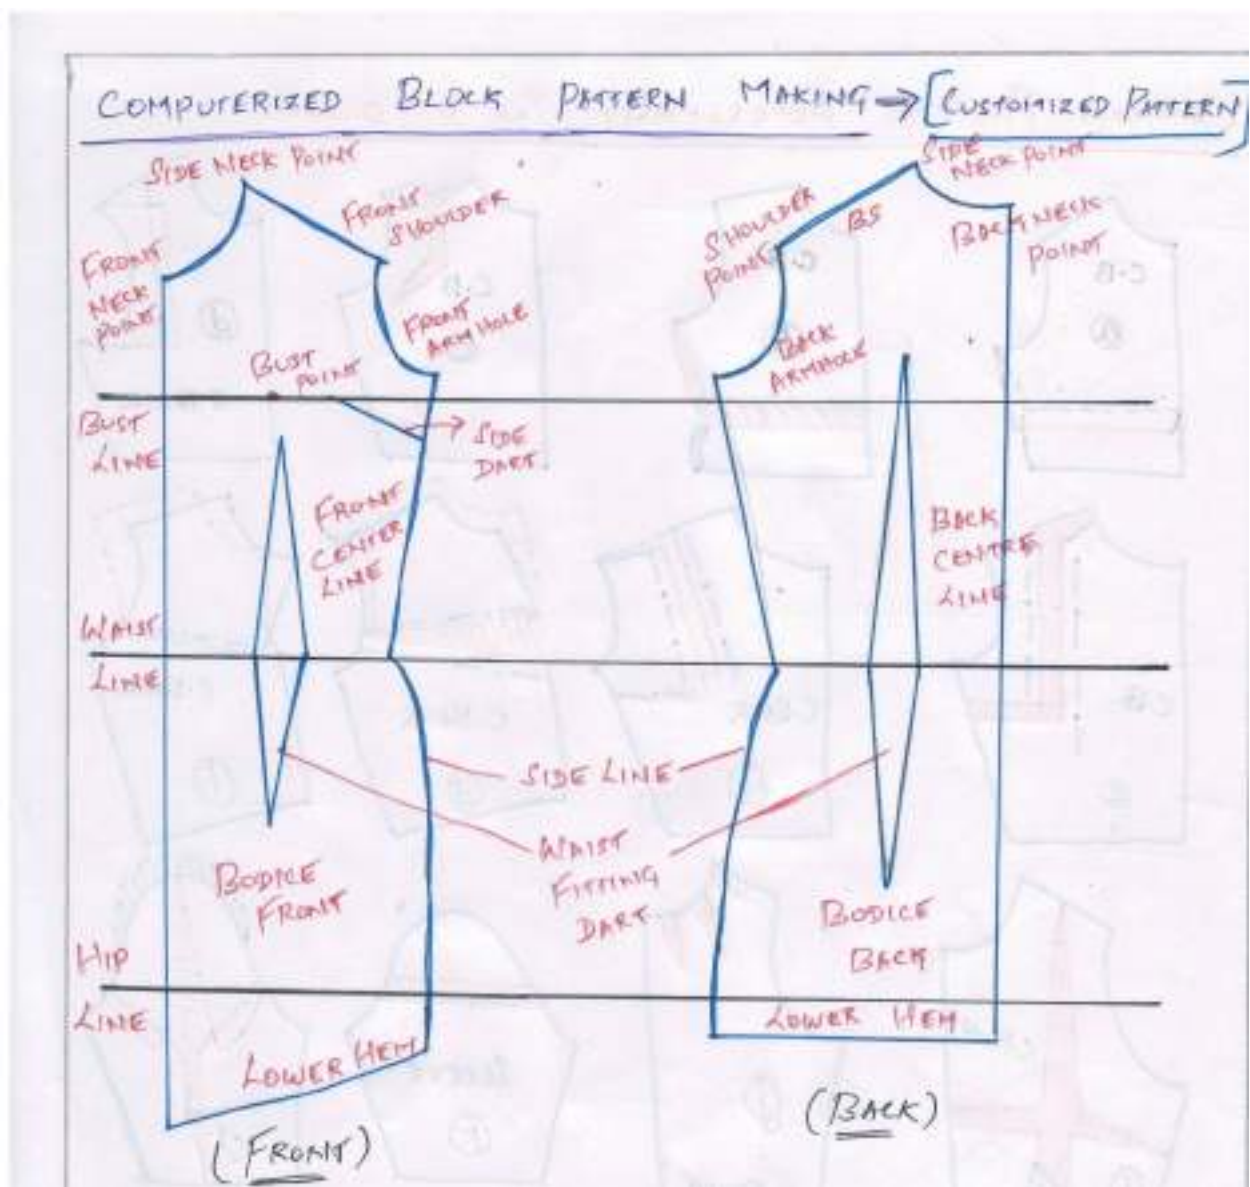 COMPUTERIZED BLOCK PATTERN MAKING → [CUSTOMIZED PATTERN]
SIDE NECK POINT
FRONT
SHOULDER
FRONT
NECK
POINT
FRONT
ARMHOLE
BUST
POINT
BUST
LINE
SIDE
DART
FRONT
CENTER
LINE
WAIST
LINE
BODICE
FRONT
HIP
LINE
LOWER HEM
(FRONT)
SIDE LINE
WAIST
FITTING
DART
SIDE
NECK POINT
SHOULDER
POINT
BS
BACK NECK
POINT
BACK
ARMHOLE
BACK
CENTRE
LINE
BODICE
BACK
LOWER HEM
(BACK)
C.B
C.B